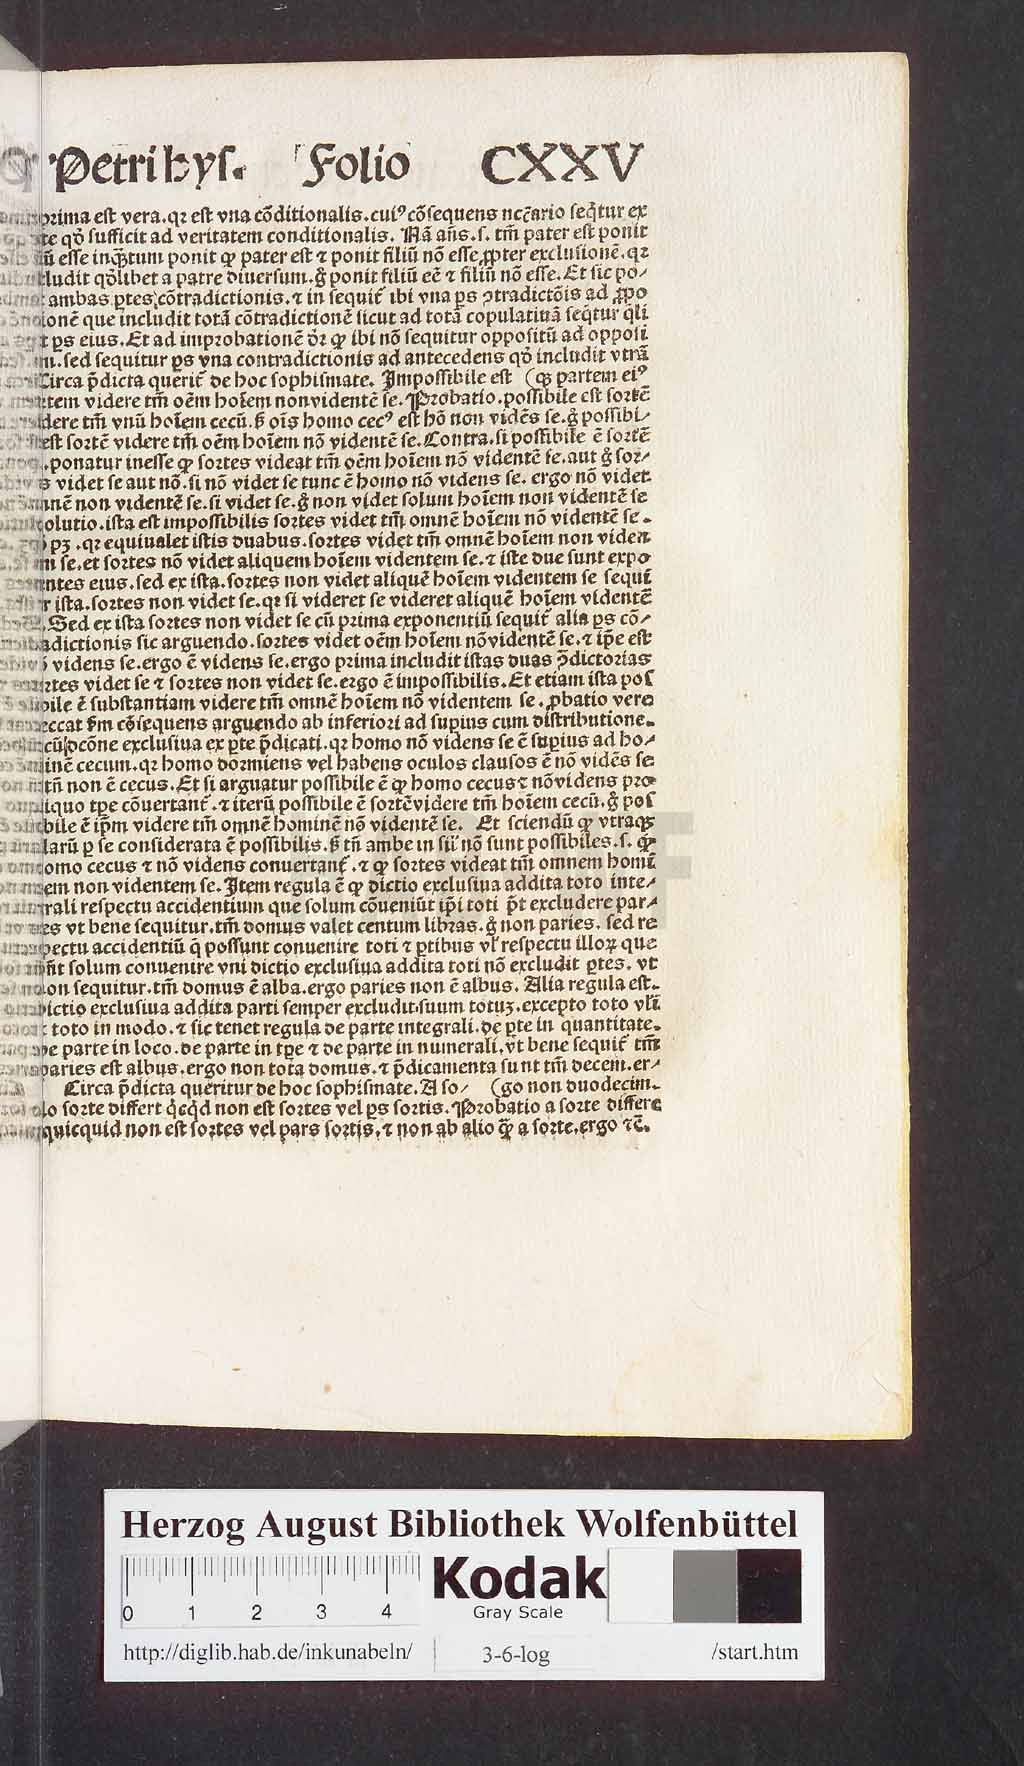 Petri hys. Folio CXXV
prima est vera. qr est vna cōditionalis. cuiꝰ cōsequens nccārio seqͥtur ex
te qð sufficit ad veritatem conditionalis. Nā añs. s. tm̄ pater est ponit
ū esse inqꝫtum ponit ꝙ pater est ⁊ ponit filiū nō esse ꝓpter exclusionē. qr
ludit qðlibet a patre diuersum. gͦ ponit filiū eē ⁊ filiū nō esse. Et sic po/
ambas ꝑtes cōtradictionis. ⁊ in sequit̄ ibi vna ps ꝯtradictōis ad ꝓpo
ionē que includit totā cōtradictionē sicut ad totā copulatiuā seqͥtur qͥlī
t ps eius. Et ad improbationē dr̄ ꝙ ibi nō sequitur oppositū ad opposi
m. sed sequitur ps vna contradictionis ad antecedens qð includit vtrā
Circa p̄dicta querit̄ de hoc sophismate. Impossibile est (qꝫ partem eiꝰ
tem videre tm̄ oēm hoīem nonvidentē se. Probatio. possibile est sortē
dere tm̄ vnū hoīem cecū. sꝫ oīs homo cecꝰ est hō non vidēs se. gͦ possibi/
est sortē videre tm̄ oēm hoīem nō videntē se. Contra. si possibile ē sortē
. ponatur inesse ꝙ sortes videat tm̄ oēm hoīem nō videntē se. aut gͦ sor/
s videt se aut nō. si nō videt se tunc ē homo nō videns se. ergo nō videt
nē non videntē se. si videt se. gͦ non videt solum hoīem non videntē se
olutio. ista est impossibilis sortes videt tm̄ omnē hoīem nō videntē se.
pꝫ. qr equiualet istis duabus. sortes videt tm̄ omnē hoīem non viden
m se. et sortes nō videt aliquem hoīem videntem se. ⁊ iste due sunt expo
ntes eius. sed ex ista. sortes non videt aliquē hoīem videntem se sequī
r ista. sortes non videt se. qr si videret se videret aliquē hoīem videntē
. Sed ex ista sortes non videt se cū prima exponentiū sequit̄ alia ps cō/
adictionis sic arguendo. sortes videt oēm hoīem nōvidentē se. ⁊ ip̄e est
videns se. ergo ē videns se. ergo prima includit istas duas ꝯ̄dictorias
rtes videt se ⁊ sortes non videt se. ergo ē impossibilis. Et etiam ista pos
bile ē substantiam videre tm̄ omnē hoīem nō videntem se. ꝓbatio vero
eccat sm̄ cōsequens arguendo ab inferiori ad supius cum distributione.
cū dcōne exclusiua ex ꝑte p̄dicati. qr homo nō videns se ē supius ad ho/
inē cecum. qr homo dormiens vel habens oculos clausos ē nō vidēs se
tn̄ non ē cecus. Et si arguatur possibile ē ꝙ homo cecus ⁊ nōvidens pro
iquo tpe cōuertant̄. ⁊ iterū possibile ē sortēvidere tm̄ hoīem cecū. gͦ pos
bile ē ip̄m videre tm̄ omnē hominē nō videntē se. Et sciendū ꝙ vtraqꝫ
larū p se considerata ē possibilis. sꝫ tn̄ ambe in siī nō sunt possibiles. s. ꝙ
omo cecus ⁊ nō videns conuertant̄. ⁊ ꝙ sortes videat tm̄ omnem homi
em non videntem se. Item regula ē ꝙ dictio exclusiua addita toto inte/
rali respectu accidentium que solum cōueniūt ip̄i toti p̄t excludere par/
es vt bene sequitur. tm̄ domus valet centum libras. gͦ non paries. sed re
pectu accidentiū q̄ possunt conuenire toti ⁊ ꝑtibus vl̄ respectu illoꝝ que
nt̄ solum conuenire vni dictio exclusiua addita toti nō excludit ꝑtes. vt
on sequitur. tm̄ domus ē alba. ergo paries non ē albus. Alia regula est.
ictio exclusiua addita parti semper excludit suum totuꝫ. excepto toto vlī
toto in modo. ⁊ sic tenet regula de parte integrali. de ꝑte in quantitate.
e parte in loco. de parte in tpe ⁊ de parte in numerali. vt bene sequit̄ tm̄
paries est albus. ergo non tota domus. ⁊ p̄dicamenta sunt tm̄ decem. er/
Circa p̄dicta queritur de hoc sophismate. A so/ (go non duodecim.
lo sorte differt qͥcqͥd non est sortes vel ps sortis. Probatio a sorte differt
quicquid non est sortes vel pars sortis. ⁊ non ab alio qꝫ a sorte. ergo ⁊c̄.
Herzog August Bibliothek Wolfenbüttel
0 1 2 3 4
Kodak
Gray Scale
http://diglib.hab.de/inkunabeln/ 3-6-log /start.htm